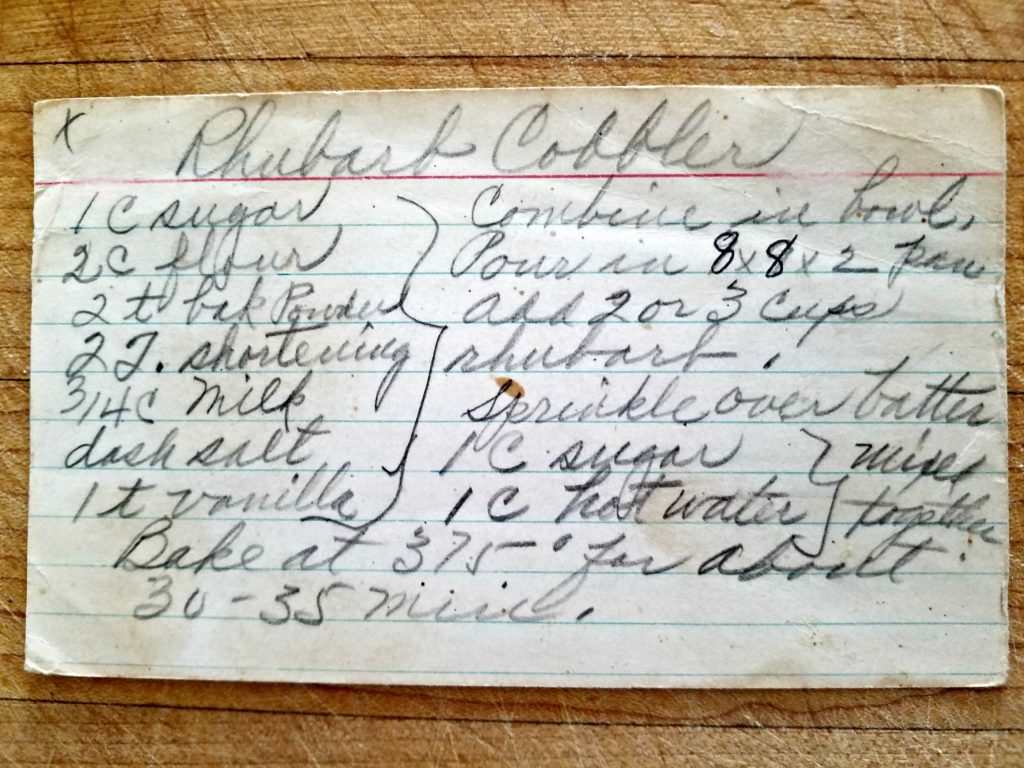 x
Rhubarb Cobbler
1 C sugar
2 C flour
2 t bak Powder
2 T. shortening
3/4 C Milk
dash salt
1 t vanilla
Combine in bowl.
Pour in 8x8x2 pan
add 2 or 3 cups
rhubarb.
Sprinkle over batter
1 C sugar
1 C hot water
mixed
together
Bake at 375° for about
30-35 min.